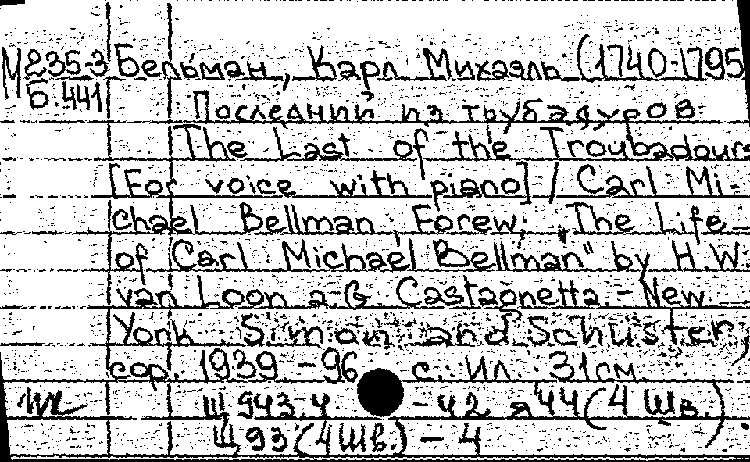 М235.3 Бельман, Карл Михаэль (1740-1795
Б.441
Последний из трубадуров
The Last of the Troubadours
[For voice with piano] / Carl Mi-
chael Bellman; Forew: „The Life
of Carl Michael Bellman" by H.W.
van Loon a. G. Castagnetta. – New
York. Simon and Schuster,
cop. 1939. – 96 с. Ил. 31см.
Щ943.4 -42 я'44 (4 Шв.)
Щ93(4Шв.) – 4